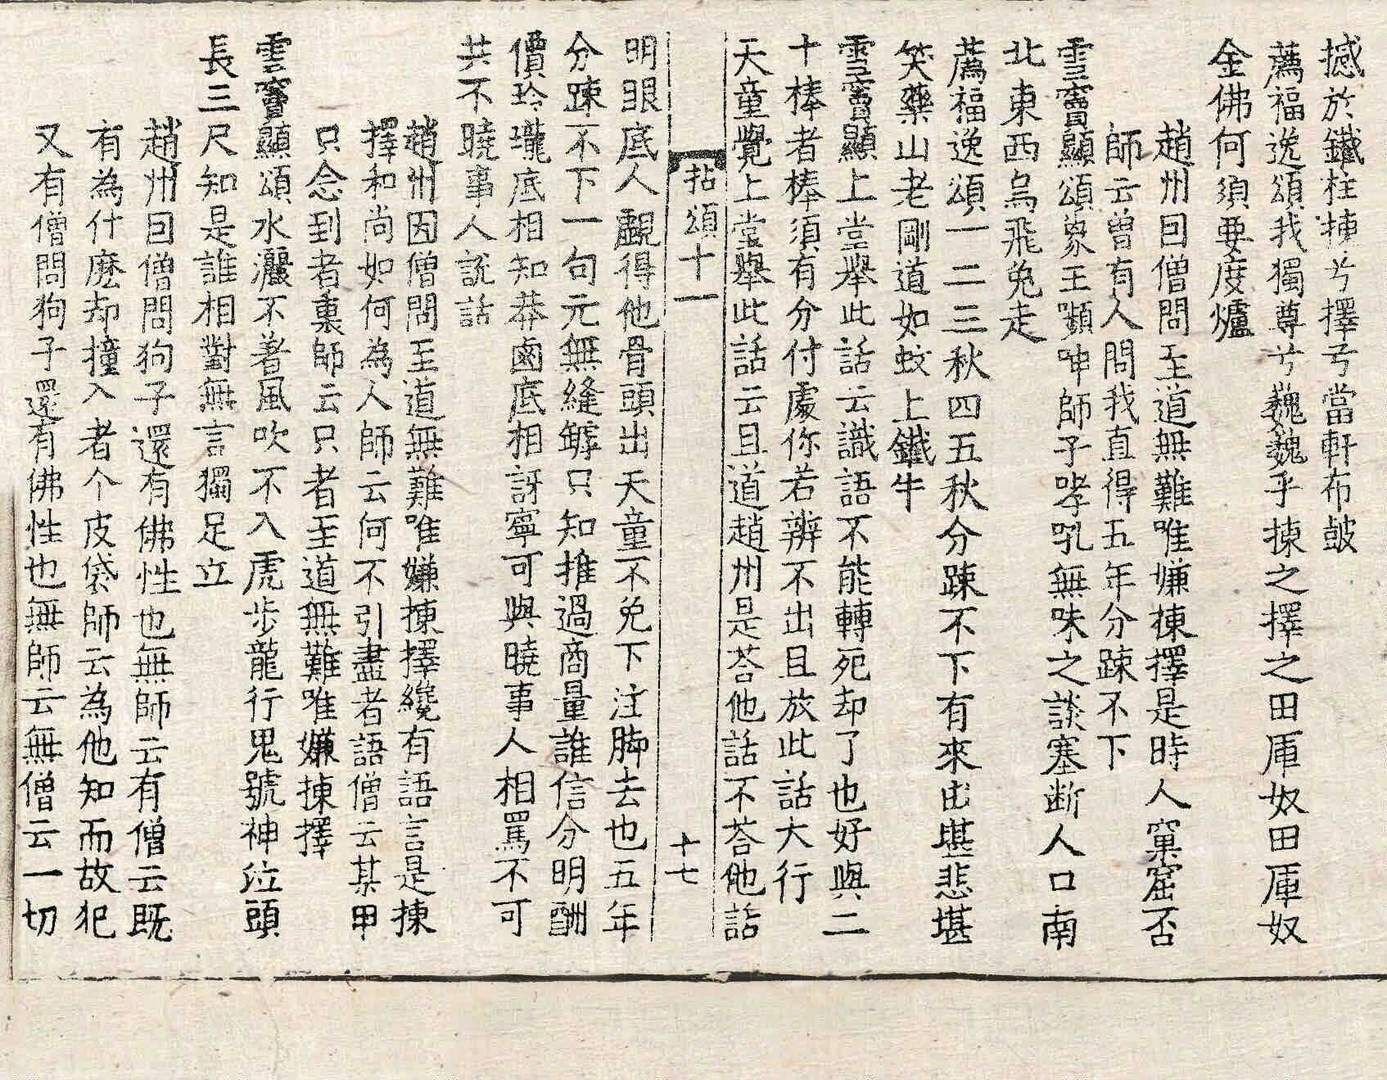 撼於鐵柱揀兮擇兮當軒布皷
薦福逸頌我獨尊兮巍巍乎揀之擇之田厙奴田厙奴
金佛何須要度爐
趙州因僧問至道無難唯嫌揀擇是時人窠窟否
師云曾有人問我直得五年分踈不下
雪竇顯頌象王嚬呻師子哮吼無味之談塞断人口南
北東西烏飛兔走
薦福逸頌一二三秋四五秋分踈不下有來由堪悲堪
笑藥山老剛道如蚊上鐵牛
雪竇顯上堂舉此話云識語不能轉死却了也好與二
十棒者棒須有分付處你若辨不出且放此話大行
天童覺上堂舉此話云且道趙州是荅他話不荅他話
拈頌十一
十七
明眼底人覷得他骨頭出天童不免下注脚去也五年
分踈不下一句元無縫罅只知推過商量誰信分明酬
價玲瓏底相知莽鹵底相訝寧可與曉事人相罵不可
共不曉事人說話
趙州因僧問至道無難唯嫌揀擇纔有語言是揀
擇和尚如何為人師云何不引盡者語僧云某甲
只念到者裏師云只者至道無難唯嫌揀擇
雪竇顯頌水灑不著風吹不入虎步龍行鬼號神泣頭
長三尺知是誰相對無言獨足立
趙州因僧問狗子還有佛性也無師云有僧云既
有為什麽却撞入者个皮袋師云為他知而故犯
又有僧問狗子還有佛性也無師云無僧云一切